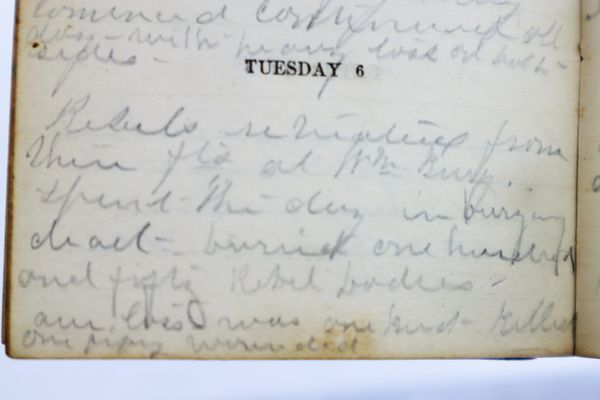 continued all
day - with heavy loss on both -
sides -
TUESDAY 6
Rebels retreated from
their fts at Wmburg.
spent the day in burying
dead - buried one hundred
and fifty Rebel bodies -
our loss was one hund - killed
one fifty wounded